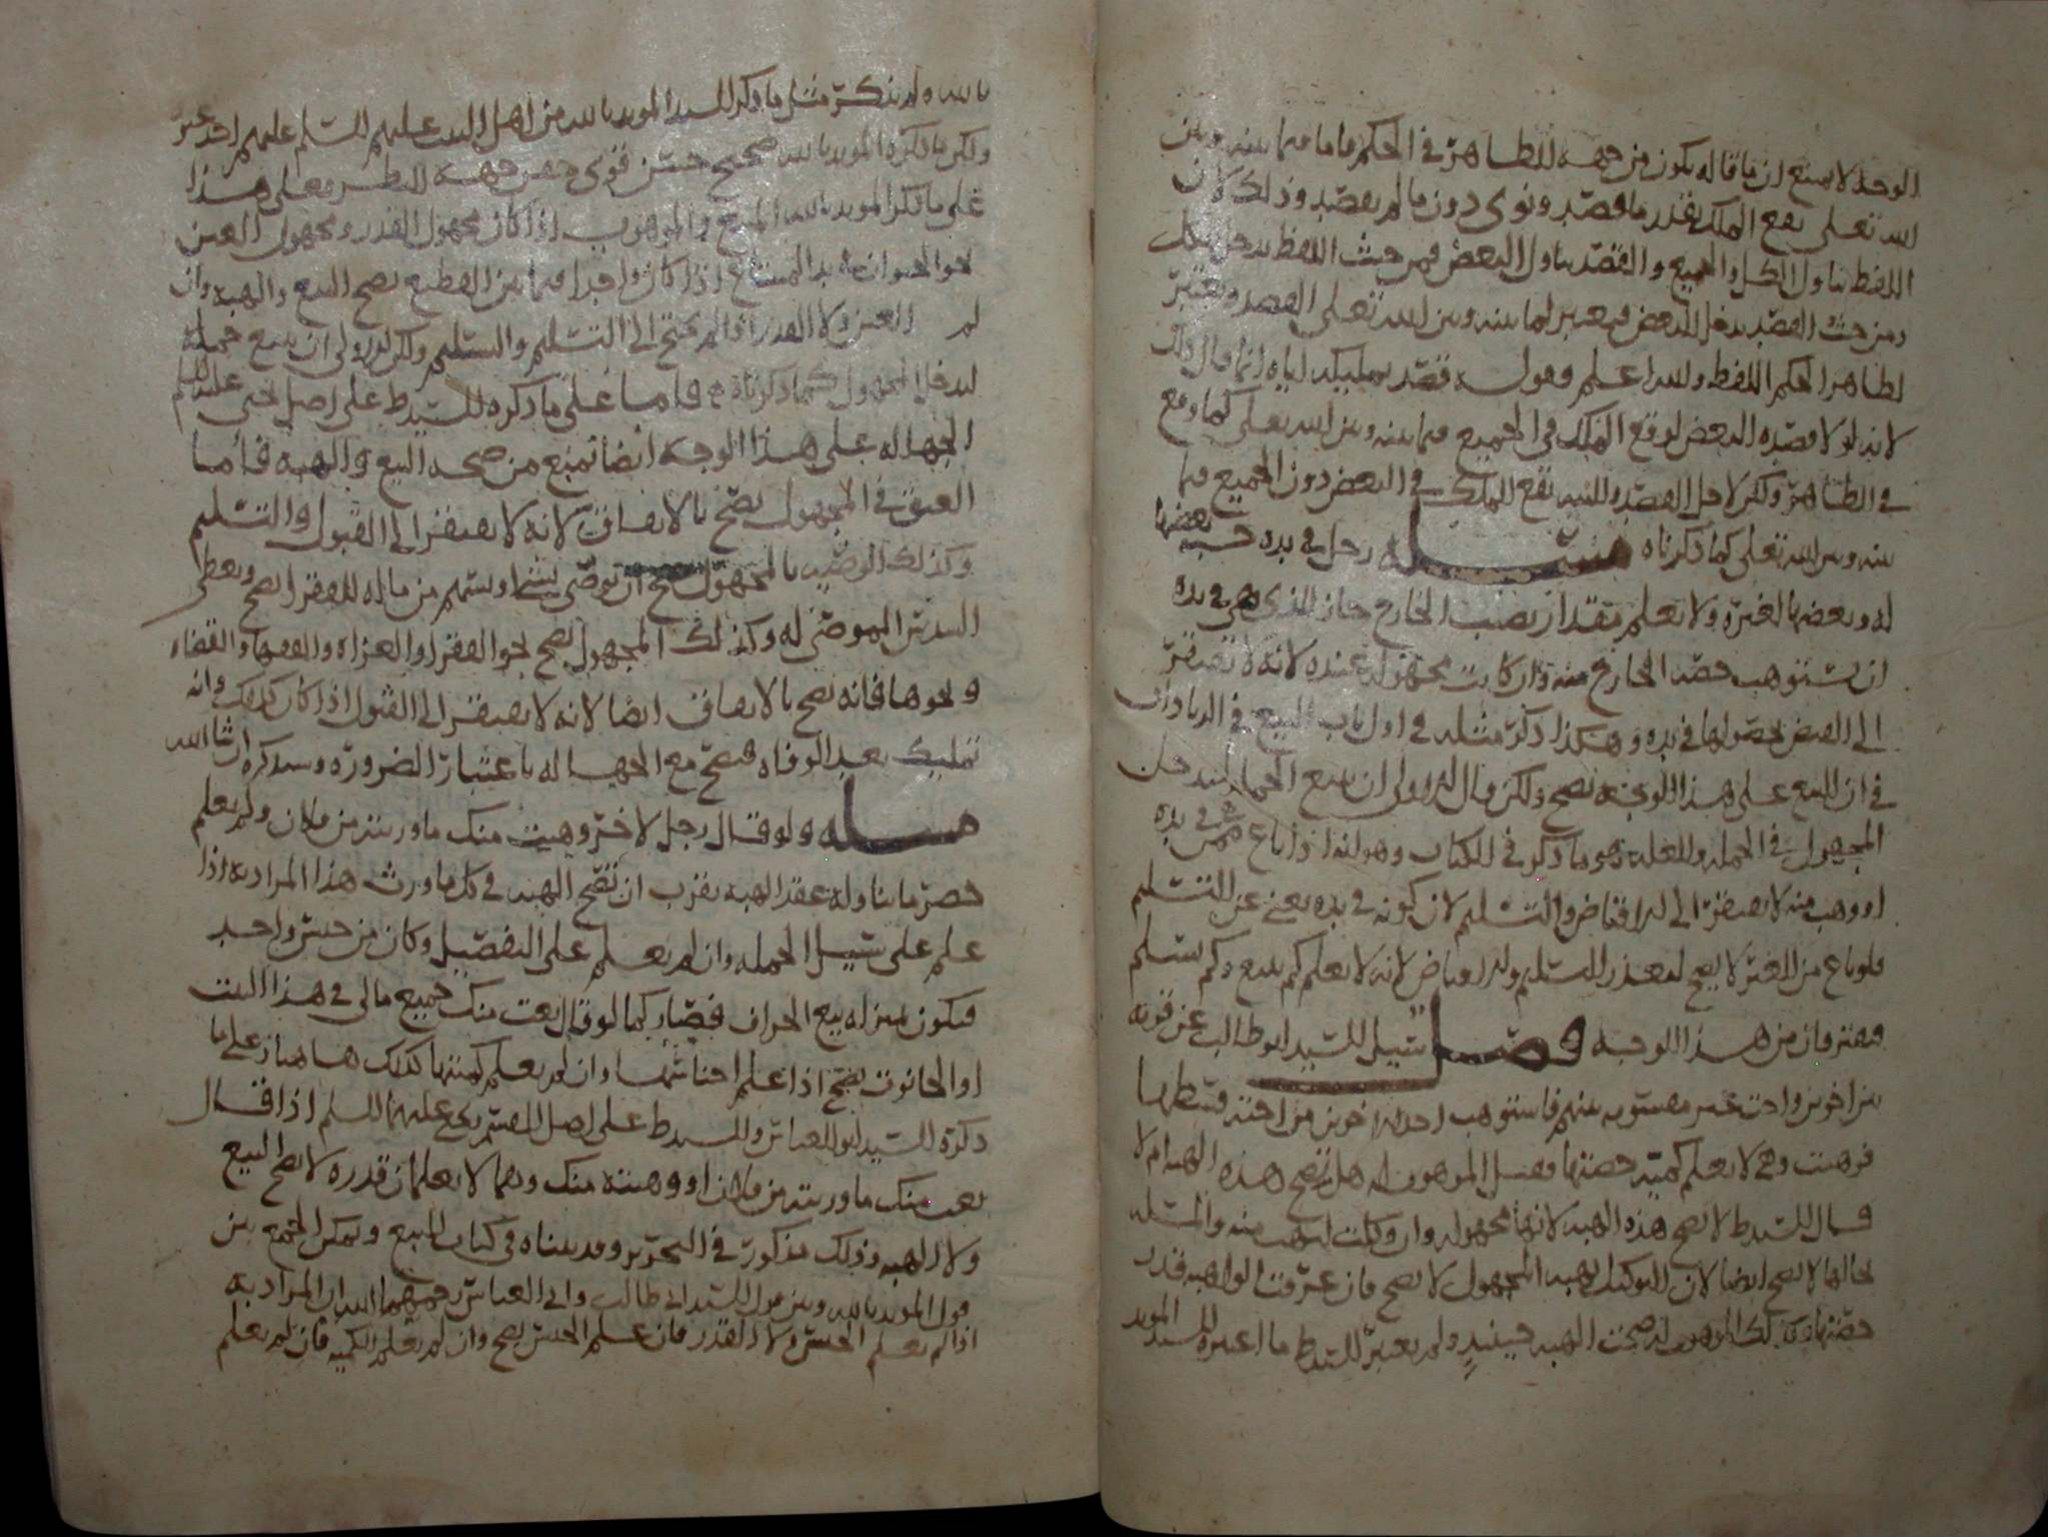 الوجه لا يمنع ان ما قاله يكون من جهه الظاهر في الحكم فاما فيما بينه وبين
الله تعالى يقع الملك بقدر ما قصد ونوى دون ما لم يقصد وذلك لان
اللفظ يتاول الكل والجميع والقصد يتاول البعض فمن حيث اللفظ يدخل الكل
ومن حيث القصد يدخل البعض فيعتبر فيما بينه وبين الله تعالى القصد ويعتبر
لظاهر الحكم اللفظ والله اعلم وقوله قصد تمليكه اياه انما قال ذلك
لانه لولا قصده البعض لوقع الملك في الجميع فيما بينه وبين الله تعالى كما وقع
في الظاهر ولكن لاجل القصد والنيه يقع الملك في البعض دون الجميع فيما
بينه وبين الله تعالى كما ذكرناه مسله رجل في يده بعضها
له وبعضها لغيره ولا يعلم مقدار نصيب الخارج جاز للذي هي في يده
ان يستوهب حصه الخارج منه وان كانت مجهوله عنده لانه لا تفتقر
الى القبض لحصولها في يده وهكذا ذكر مثله في اول باب البيع في الزيادات
في ان البيع على هذا الوجه يصح ولكن قال الاولى ان يبيع الجمله ليدخل
المجهول في الجمله والعله هو ما ذكر في الكتاب وهو انه اذا باع ممن هي في يده
او وهب منه لا يفتقر الى الاقباض والتسليم لان كونه في يده يغني عن التسليم
فلو باع من الغير لا يصح لتعذر التسليم والاقباض لانه لا يعلم كم يبيع وكم يسلم
فيفترقان من هذا الوجه فصل سيل السيد ابو طالب عن قريه
بين اخوين واخت غير مقسومه بينهم فاستوهب احد الاخوين من اخته قسطها
فوهبت وهي لا يعلم كميه حصتها وقبل الموهوب له هل تصح هذه الهبه ام لا
قال السيد ط لا تصح هذه الهبه لانها مجهوله وان وكلت لتهب منه والمسله
بحالها لا تصح ايضا لان التوكيل بهبه المجهول لا تصح فان عرفت الواهبه قدر
حصتها وكذلك الموهوب له صحت الهبه حينيذٍ ولم يعتبر السيد ط ما اعتبره السيد المويد
بالله ولم يذكر مثل ما ذكر السيد المويد بالله من اهل البيت عليهم السلم عليهم احد غيره
ولكن ما ذكره المويد بالله صحيح حسن قوي من جهه النظر فعلى هذا
على ما ذكر المويد بالله المبيع والموهوب اذا كان مجهول القدر ومجهول العين
نحو الحيوان اذا كان واحدا فيما بين القطيع يصح البيع والهبه وان
لم العين ولا القدر اذا لم يحتج الى التسليم والتسلم ولكن الاولى ان يبيع جمله
ليدخل المجهول كما ذكرناه فاما على ما ذكره السيد ط على اصل يحيى عليه السلم
الجهاله على هذا الوجه ايضا تمنع من صحه البيع والهبه فاما
العتق في المجهول يصح بالاتفاق لانه لا يفتقر الى القبول والتسليم
وكذلك الوصيه بالمجهول ان توصى بشي او بسهم من ماله للفقرا يصح ويعطى
السدس الموصى له وكذلك المجهول يصح نحو الفقرا والغزاه والفقها والقضاه
ونحوها فانه يصح بالاتفاق ايضا لانه لا يفتقر الى القبول اذا كان كذلك وانه
تمليك بعد الوفاه فتصح مع الجهاله باعتبار الضروره وسنذكره ان شا الله
مسله ولو قال رجل لاخر وهبت منك ما ورثته من فلان ولم يعلم
حصر ما يتاوله عقد الهبه يقرب ان تصح الهبه في كل ما ورث هذا المراد به اذا
علم على سبيل الجمله وان لم يعلم على التفصيل وكان من جنس واحد
فيكون بمنزله بيع الجزاف فصار كما لو قال بعت منك جميع مالي في هذا البيت
او الحانوت يصح اذا علم اجناسها وان لم يعلم كميتها كذلك هاهنا وعلى ما
ذكره السيد ابو العباس والسيد ط على اصل القسم ويحي عليهما السلم اذا قال
بعت منك ما ورثته من فلان او وهبته منك وهما لا يعلمان قدره لا يصح البيع
ولا الهبه وذلك مذكور في التحرير وقد بيناه في كتاب البيع ويمكن الجمع بين
قول المويد بالله وبين قول السيد ابي طالب وابي العباس رحمهما الله ان المراد به
اذا لم يعلم الجنس ولا القدر فان علم الجنس يصح وان لم يعلم الكميه فان لم يعلم